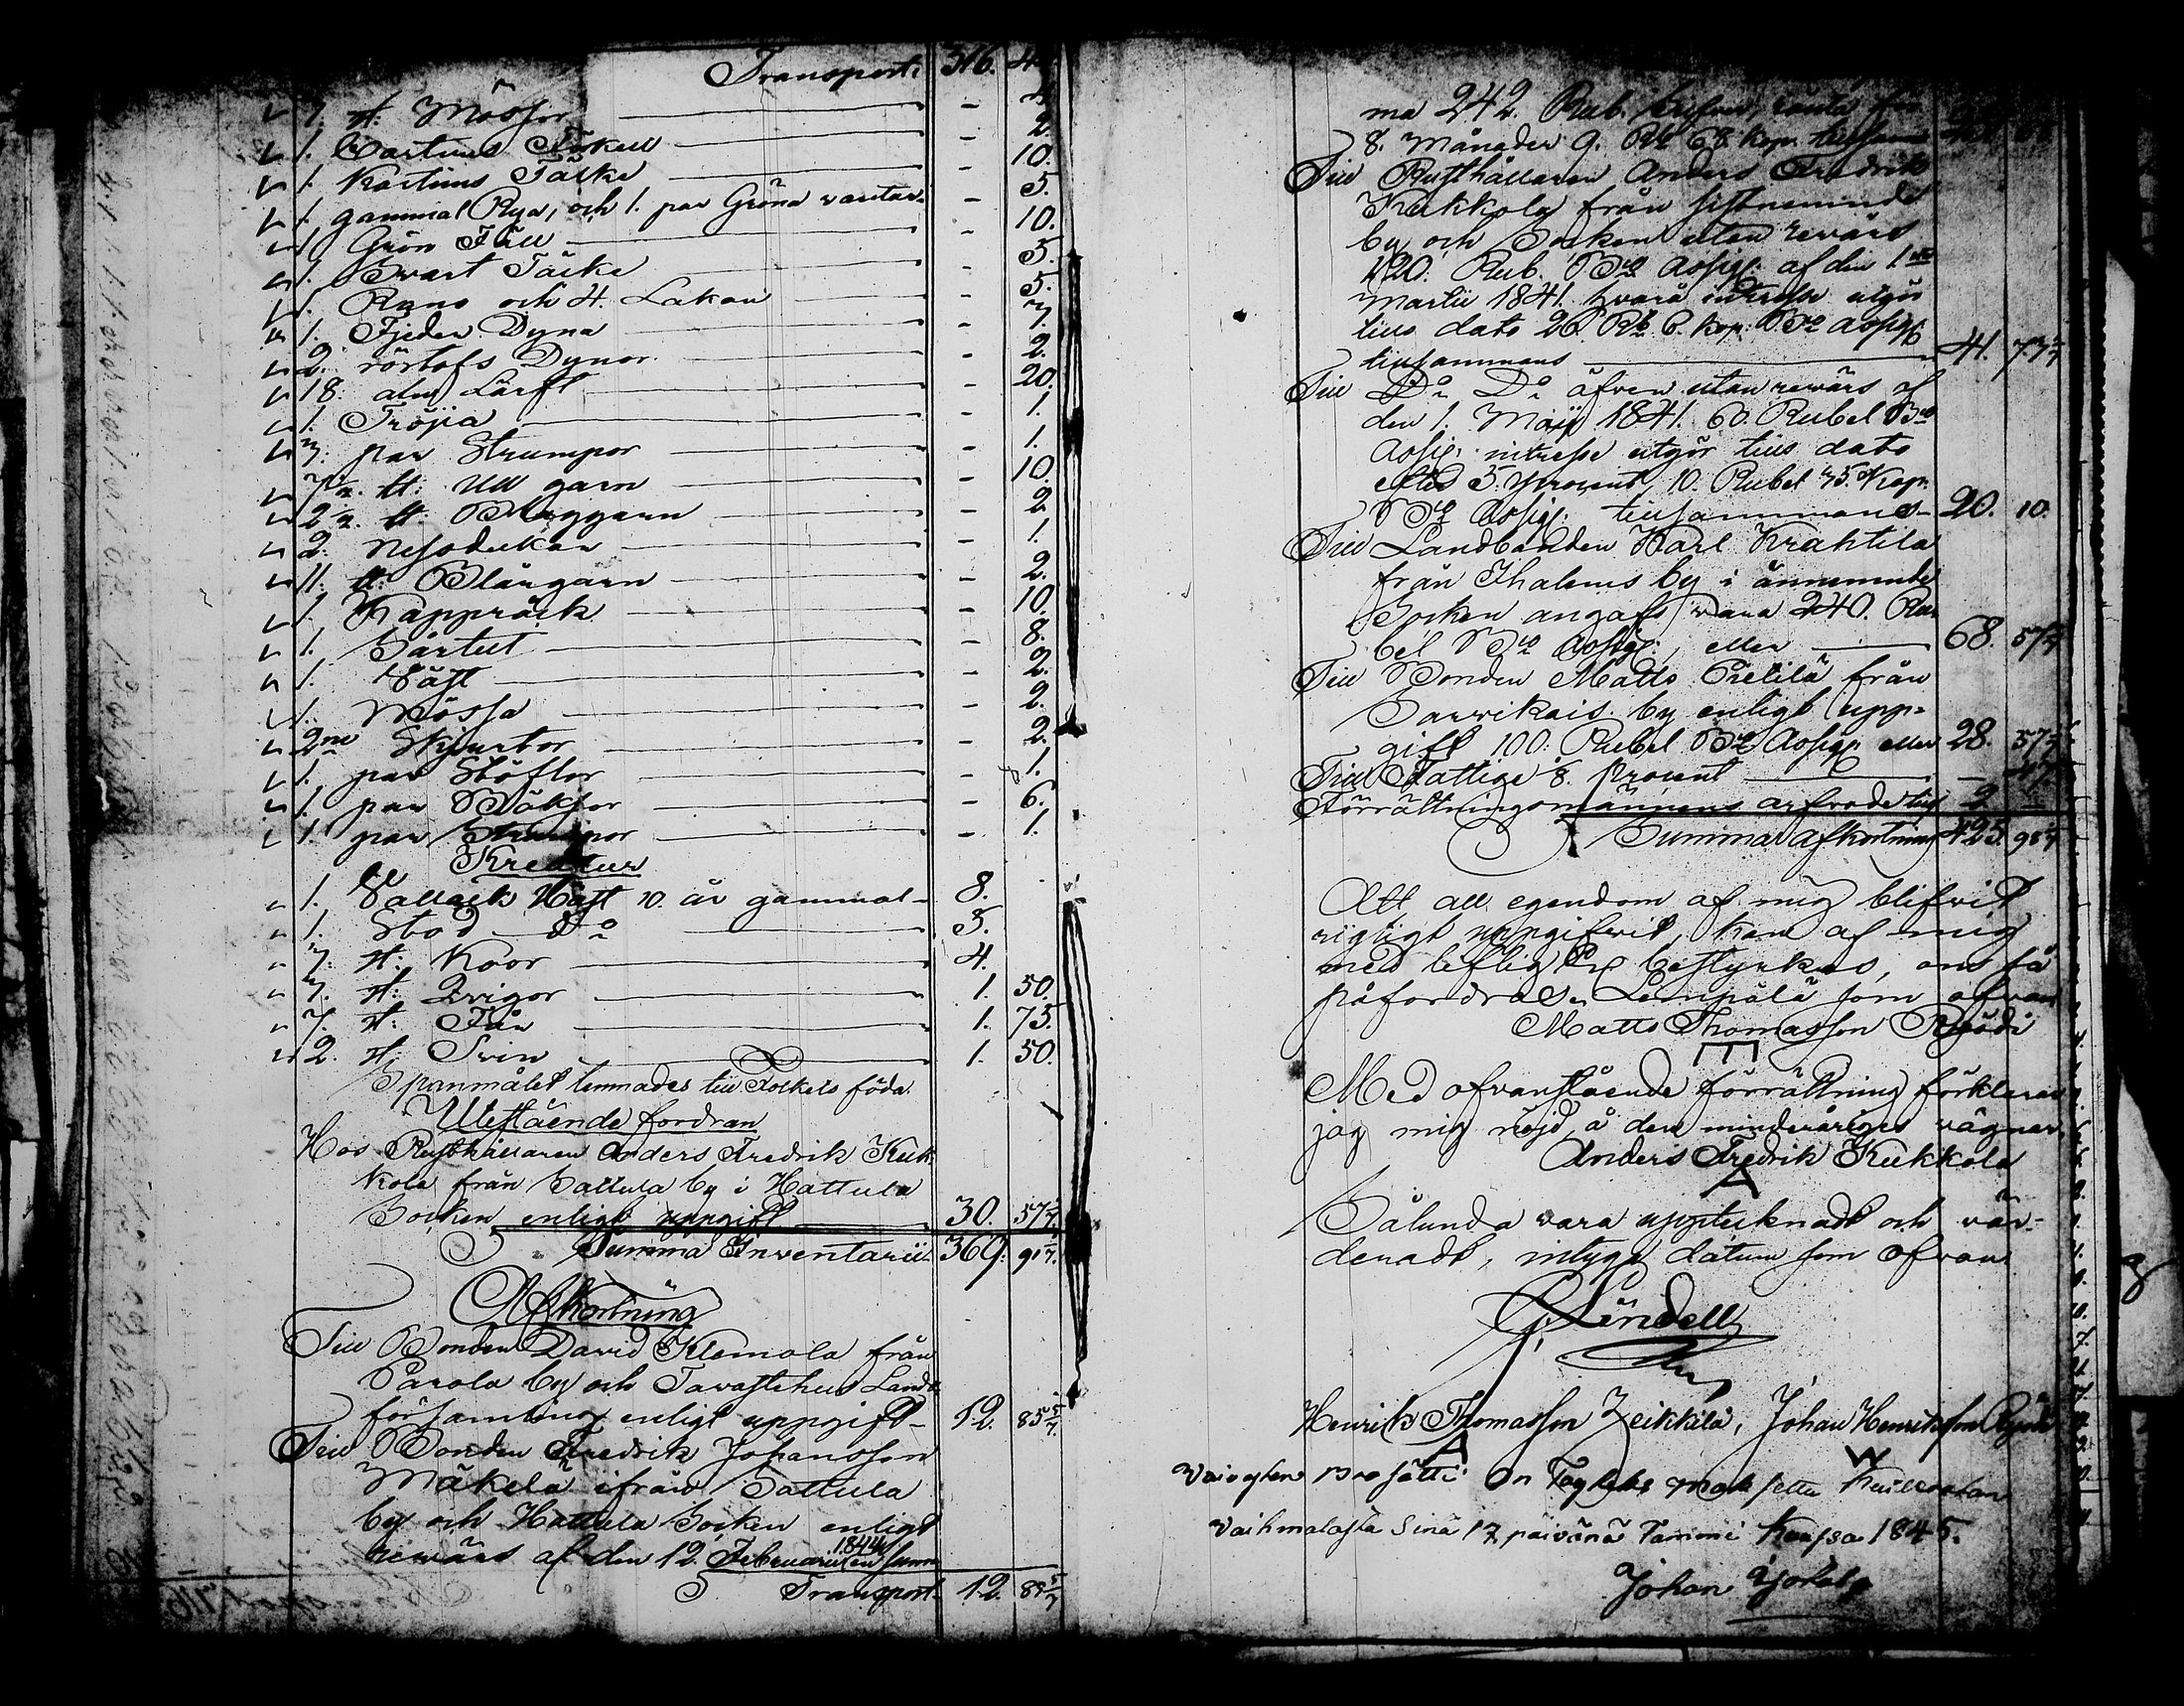 Transport: 316. 4
1. st: Mössor — 4.
1. Cartuns — 2.
1. Kartuns Täcke — 10.
1. gammal Rya, och 1. par Gröna vantar — 5.
1. Grön Fäll — 10.
1. Svart Täcke — 5.
1. och 4. Lakan — 5.
1. Fjeder Dyna — 7.
2. Dynor — 2.
18. aln Lärft — 20.
1. Tröjia — 1.
3. par Strumpor — 1.
7 1/2. ℔: Ull garn — 10.
2 1/2. ℔: Blaggarn — 2.
2. — 1.
11. ℔: Blångarn — 2.
1. Kappråck — 10.
1. Särtut — 8.
1. Väst — 2.
1. Mössa — 2.
2ne Skjurtor — 2.
1. par Stöflor — 1.
1. par Böksor — 6.
1. par Strumpor — 1.
Kreatur
1. Vallack Häst 10. år gammal — 8.
1. Stod Do — 5.
7. st: Koor — 4.
3. st: Qvigor — 1. 50.
7. st: Får — 1. 75.
2. st: Svin — 1. 50.
Spanmålet lemnades till Folkets föda.
Utestående fordran
Hos Rusthållaren Anders Fredrik Kuk-
kola från Sattula by i Hattula
Socken enligt uppgift — 30. 57 1/7.
Summa Inventarii 369. 91 3/7.
Afkortning
Till Bonden David Klemola från
Parola by och Tavastehus Lands
församling enligt uppgift — 12. 85 5/7.
Till Bonden Fredrik Johansson
Mäkelä ifrån Sattula
by och Hattula Socken enligt
revärs af den 12 Februarii 1844 en sum
Transport 12. 85 5/7
ma 242. Rub. ränta för
8. Månader 9. Rub 68. kop. tillsam
Till Rusthållaren Anders Fredrik
Kukkola från sistnemnde
by och Socken utan revärs
120. Rub. Bco Assig: af den 1.
Martii 1841. hvars intresse utgör
tills dato 26 Rub 6. kop. Bco Assig:
tillsammans — 41. 77 3/7
Till Do Do äfven utan revärs af
den 1. Maij 1841. 60. Rubel Bco
Assig: intresse utgör tills dato
efter 5. procent, 10. Rubel 35. Kop.
Bco Assig: tillsammans — 20. 10.
Till Landbonden Karl Krahtila
från Ihalems by i ännemnde
Socken angafs vara 240. Ru-
bel Bco Assig:, eller — 68. 57 1/7
Till Bonden Matts Pietilä från
Sarvikais by enligt upp-
gift 100: Rubel Bco Assig: eller 28. 57 1/7
Till Fattige 1/8. Procent
Förrättningsmännens arfvode till 2.
Summa afkortning 425. 98 4/7
Att all egendom af mig blifvit
rigtigt uppgifvit, kan af mig
med liflig Ed bestyrkas, om så
påfordras. Lempälä som ofvan
Matts Thomasson Ryödi
Med ofvanstående förrättning förklarar
jag mig nöjd, å den mindeåriges vägnar.
Anders Fredrik Kukkola
Sålunda vara upptecknadt och vär-
deradt, intyga datum som ofvan
G. Lindell
Henrik Thomasson Heikkilä, Johan Henriksson Ryödi
Vaivasten Pro on Täydelli maksettu
Vaihmalasta Sinä 17 päivänä Tammi Kuusa 1845.
Johan